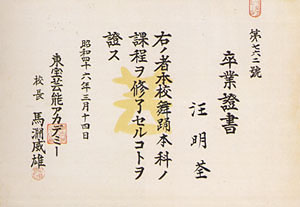 第七六二號
卒業證書
汪明荃
右ノ者本校舞踊本科ノ
課程ヲ修了セルコトヲ
證ス
昭和四十六年三月十四日
東宝芸能アカデミー
校長 馬淵威雄